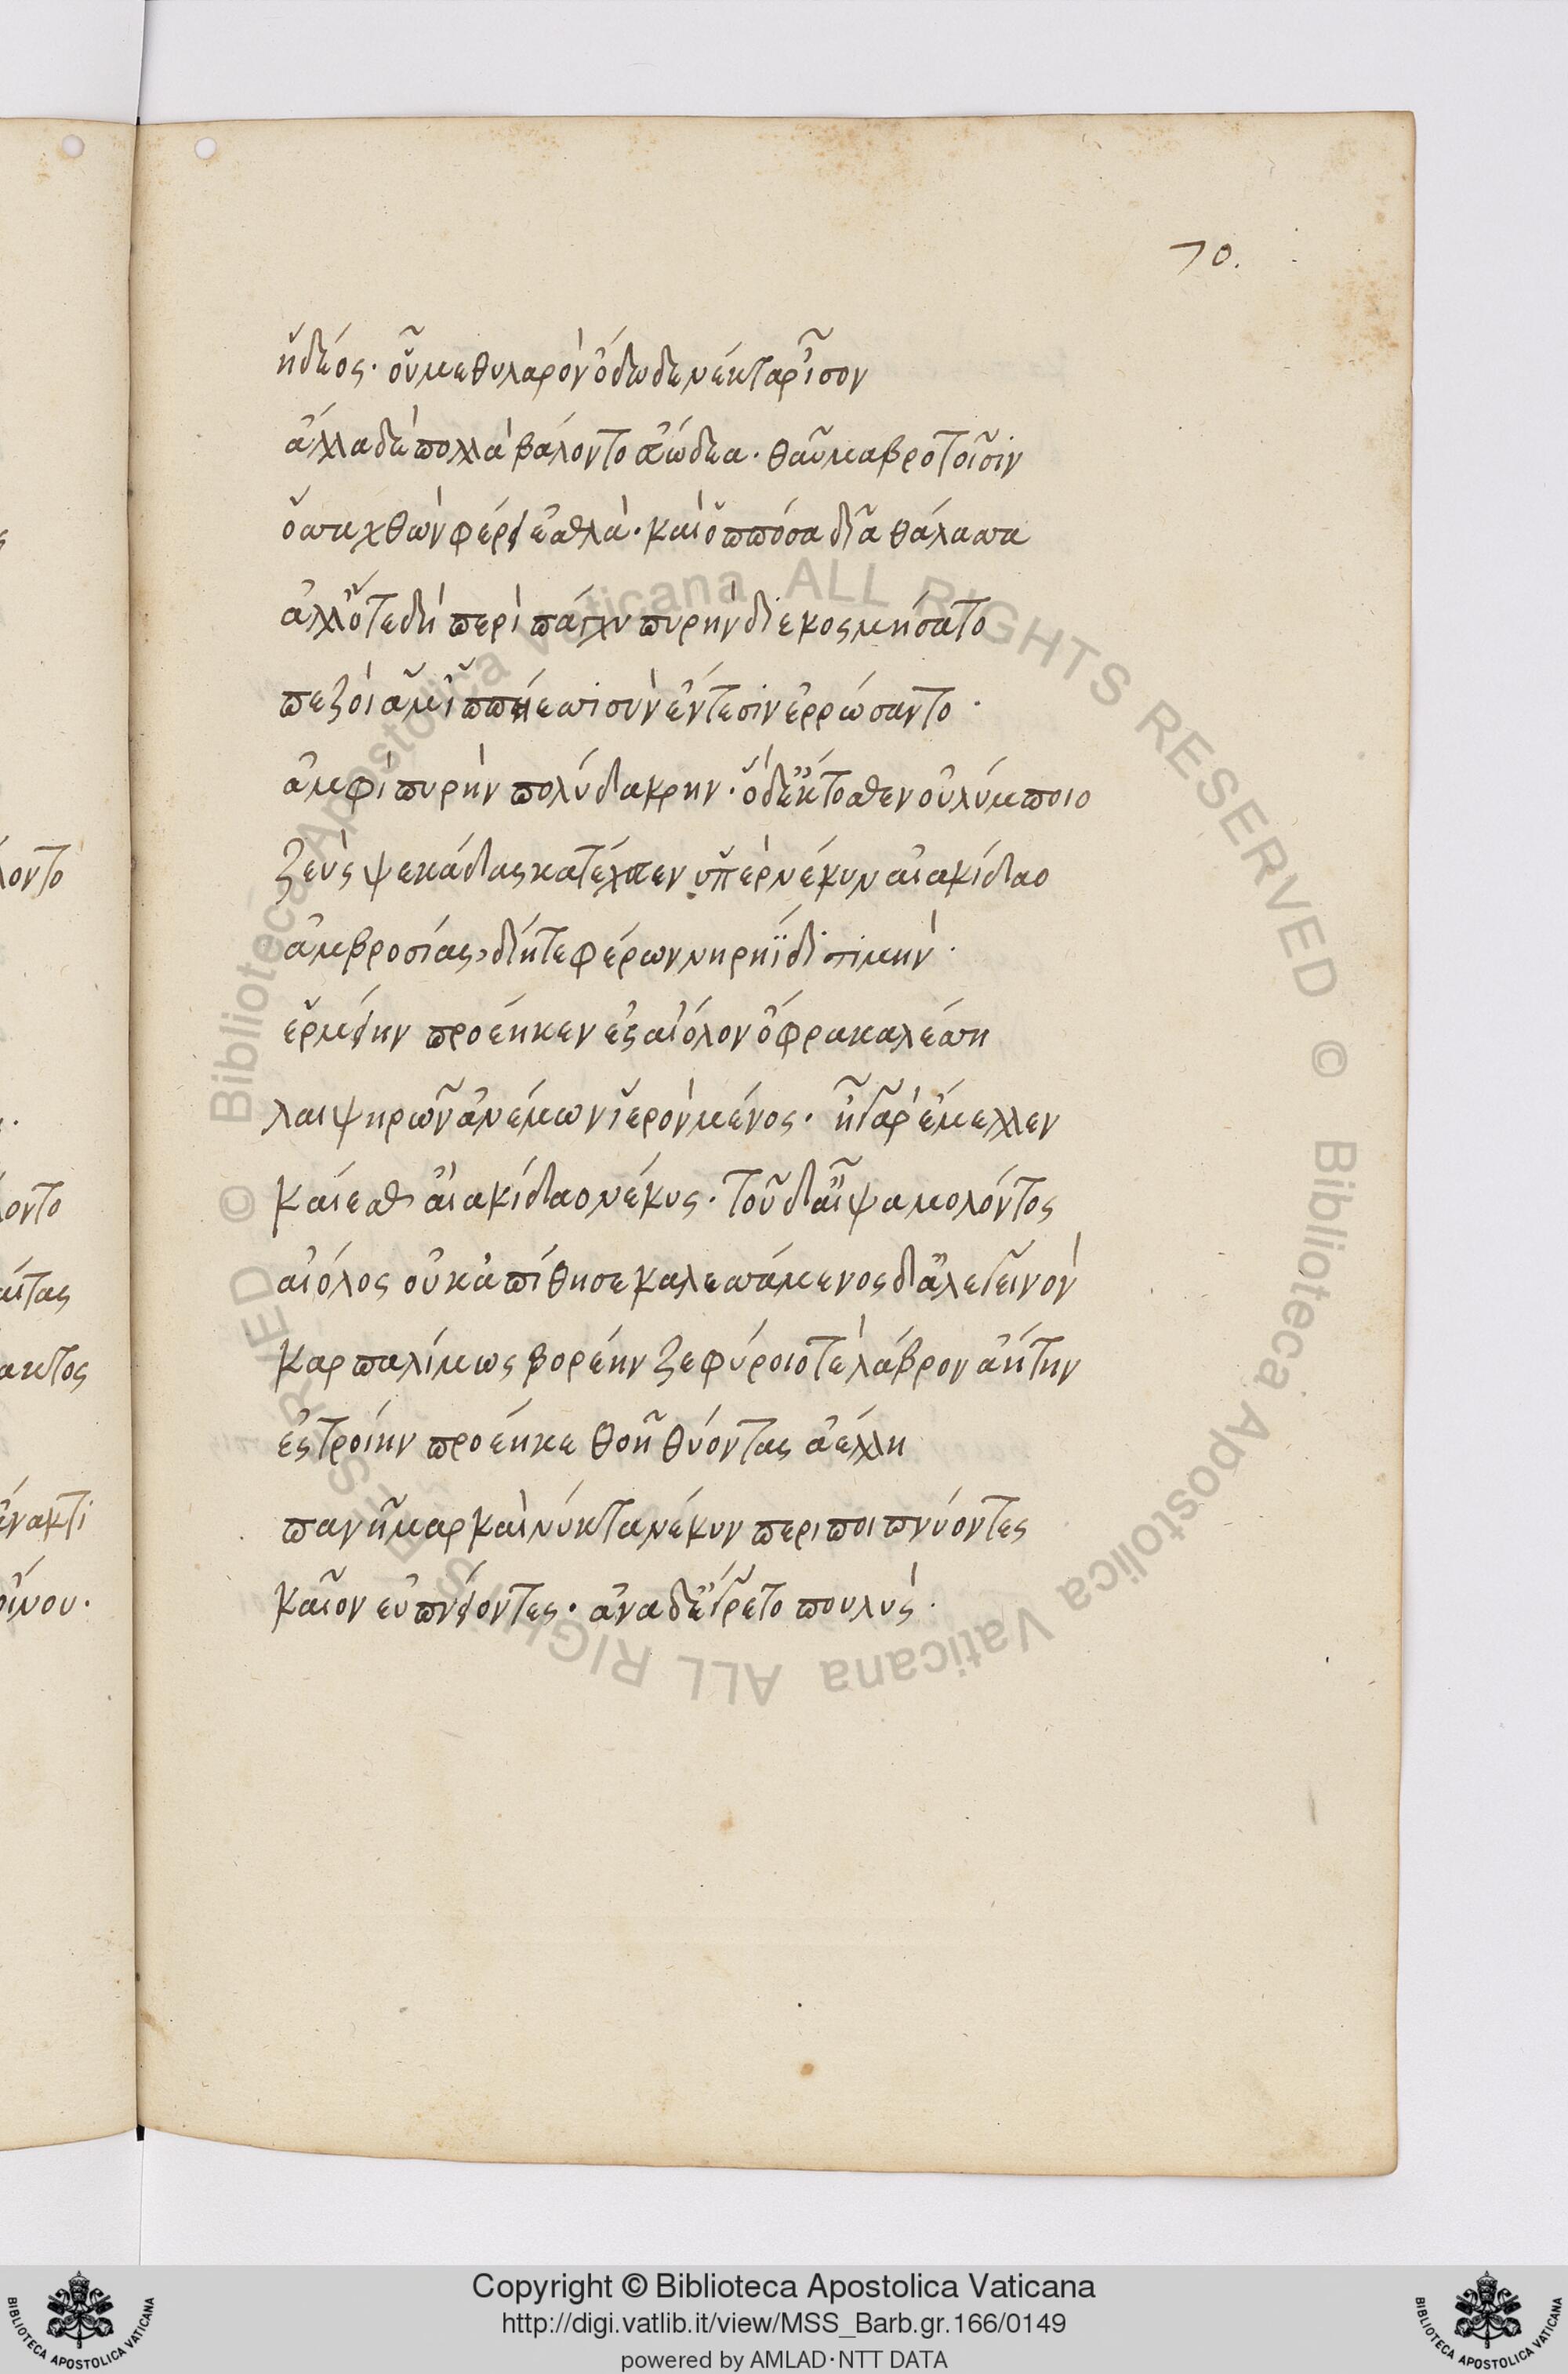 70.
ἡδέος· οὗ μέθυ λαρὸν ὀδώδει νέκταρ ἶσον
ἄλλα δὲ πολλὰ βάλοντο θυώδεα· θαῦμα βροτοῖσιν
ὅσσα χθὼν φέρει ἐσθλὰ· καὶ ὁππόσα δῖα θάλασσα
ἀλλ' ὅτε δὴ περὶ πάγχυ πυρὴν διεκοσμήσαντο
πεζοὶ ἅμ' ἱππήεσσι σὺν ἔντεσιν ἐρρώσαντο·
ἀμφὶ πυρὴν πολύδακρην· ὁ δ' ἔκτοσθεν οὐλύμποιο
ζεὺς ψεκάδας κατέχευεν ὑπὲρ νέκυν αἰακίδαο
ἀμβροσίας, δίη τε φέρων νηρηΐδι τιμὴν·
ἑρμείην προέηκεν ἐς αἴολον ὄφρα καλέσση
λαιψηρῶν ἀνέμων ἱερὸν μένος· ἦ γὰρ ἔμελλεν
καίεσθ' αἰακίδαο νέκυς· τοῦ δ' αἶψα μολόντος
αἴολος οὐκ ἀπίθησε καλεσσάμενος δ' ἀλεγεινὸν
καρπαλίμως βορέην ζεφύροιό τε λάβρον ἀήτην
ἐς τροίην προέηκε θοῇ θύοντας ἀέλλῃ
παν ἦμαρ καὶ νύκτα νέκυν περιποιπνύοντες
καῖον εὐπνείοντες· ἀνὰ δ' ἔγρετο πουλὺς·
λοντο
λοντο
ακτος
ένακτι
οἴνου·
Copyright © Biblioteca Apostolica Vaticana
http://digi.vatlib.it/view/MSS_Barb.gr.166/0149
powered by AMLAD·NTT DATA
BIBLIOTECA APOSTOLICA VATICANA
BIBLIOTECA APOSTOLICA VATICANA
© Biblioteca Apostolica Vaticana ALL RIGHTS RESERVED © Biblioteca Apostolica Vaticana ALL RIGHTS RESERVED